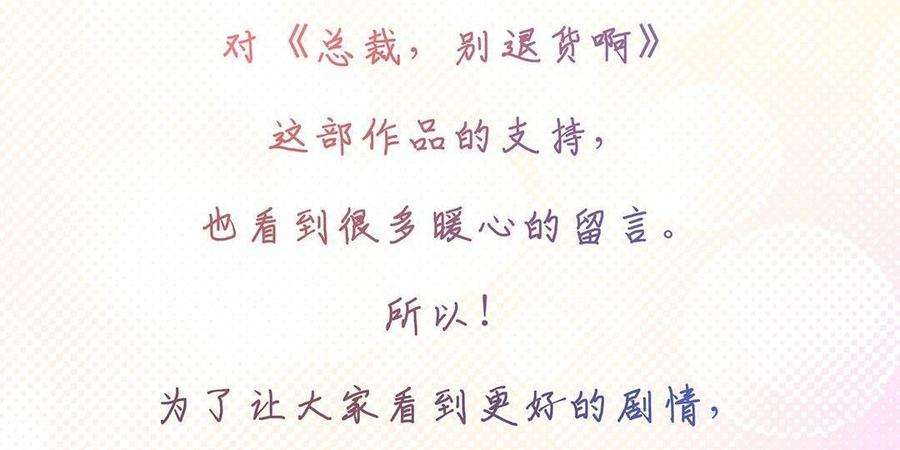 对《总裁，别退货啊》
这部作品的支持，
也看到很多暖心的留言。
所以！
为了让大家看到更好的剧情，